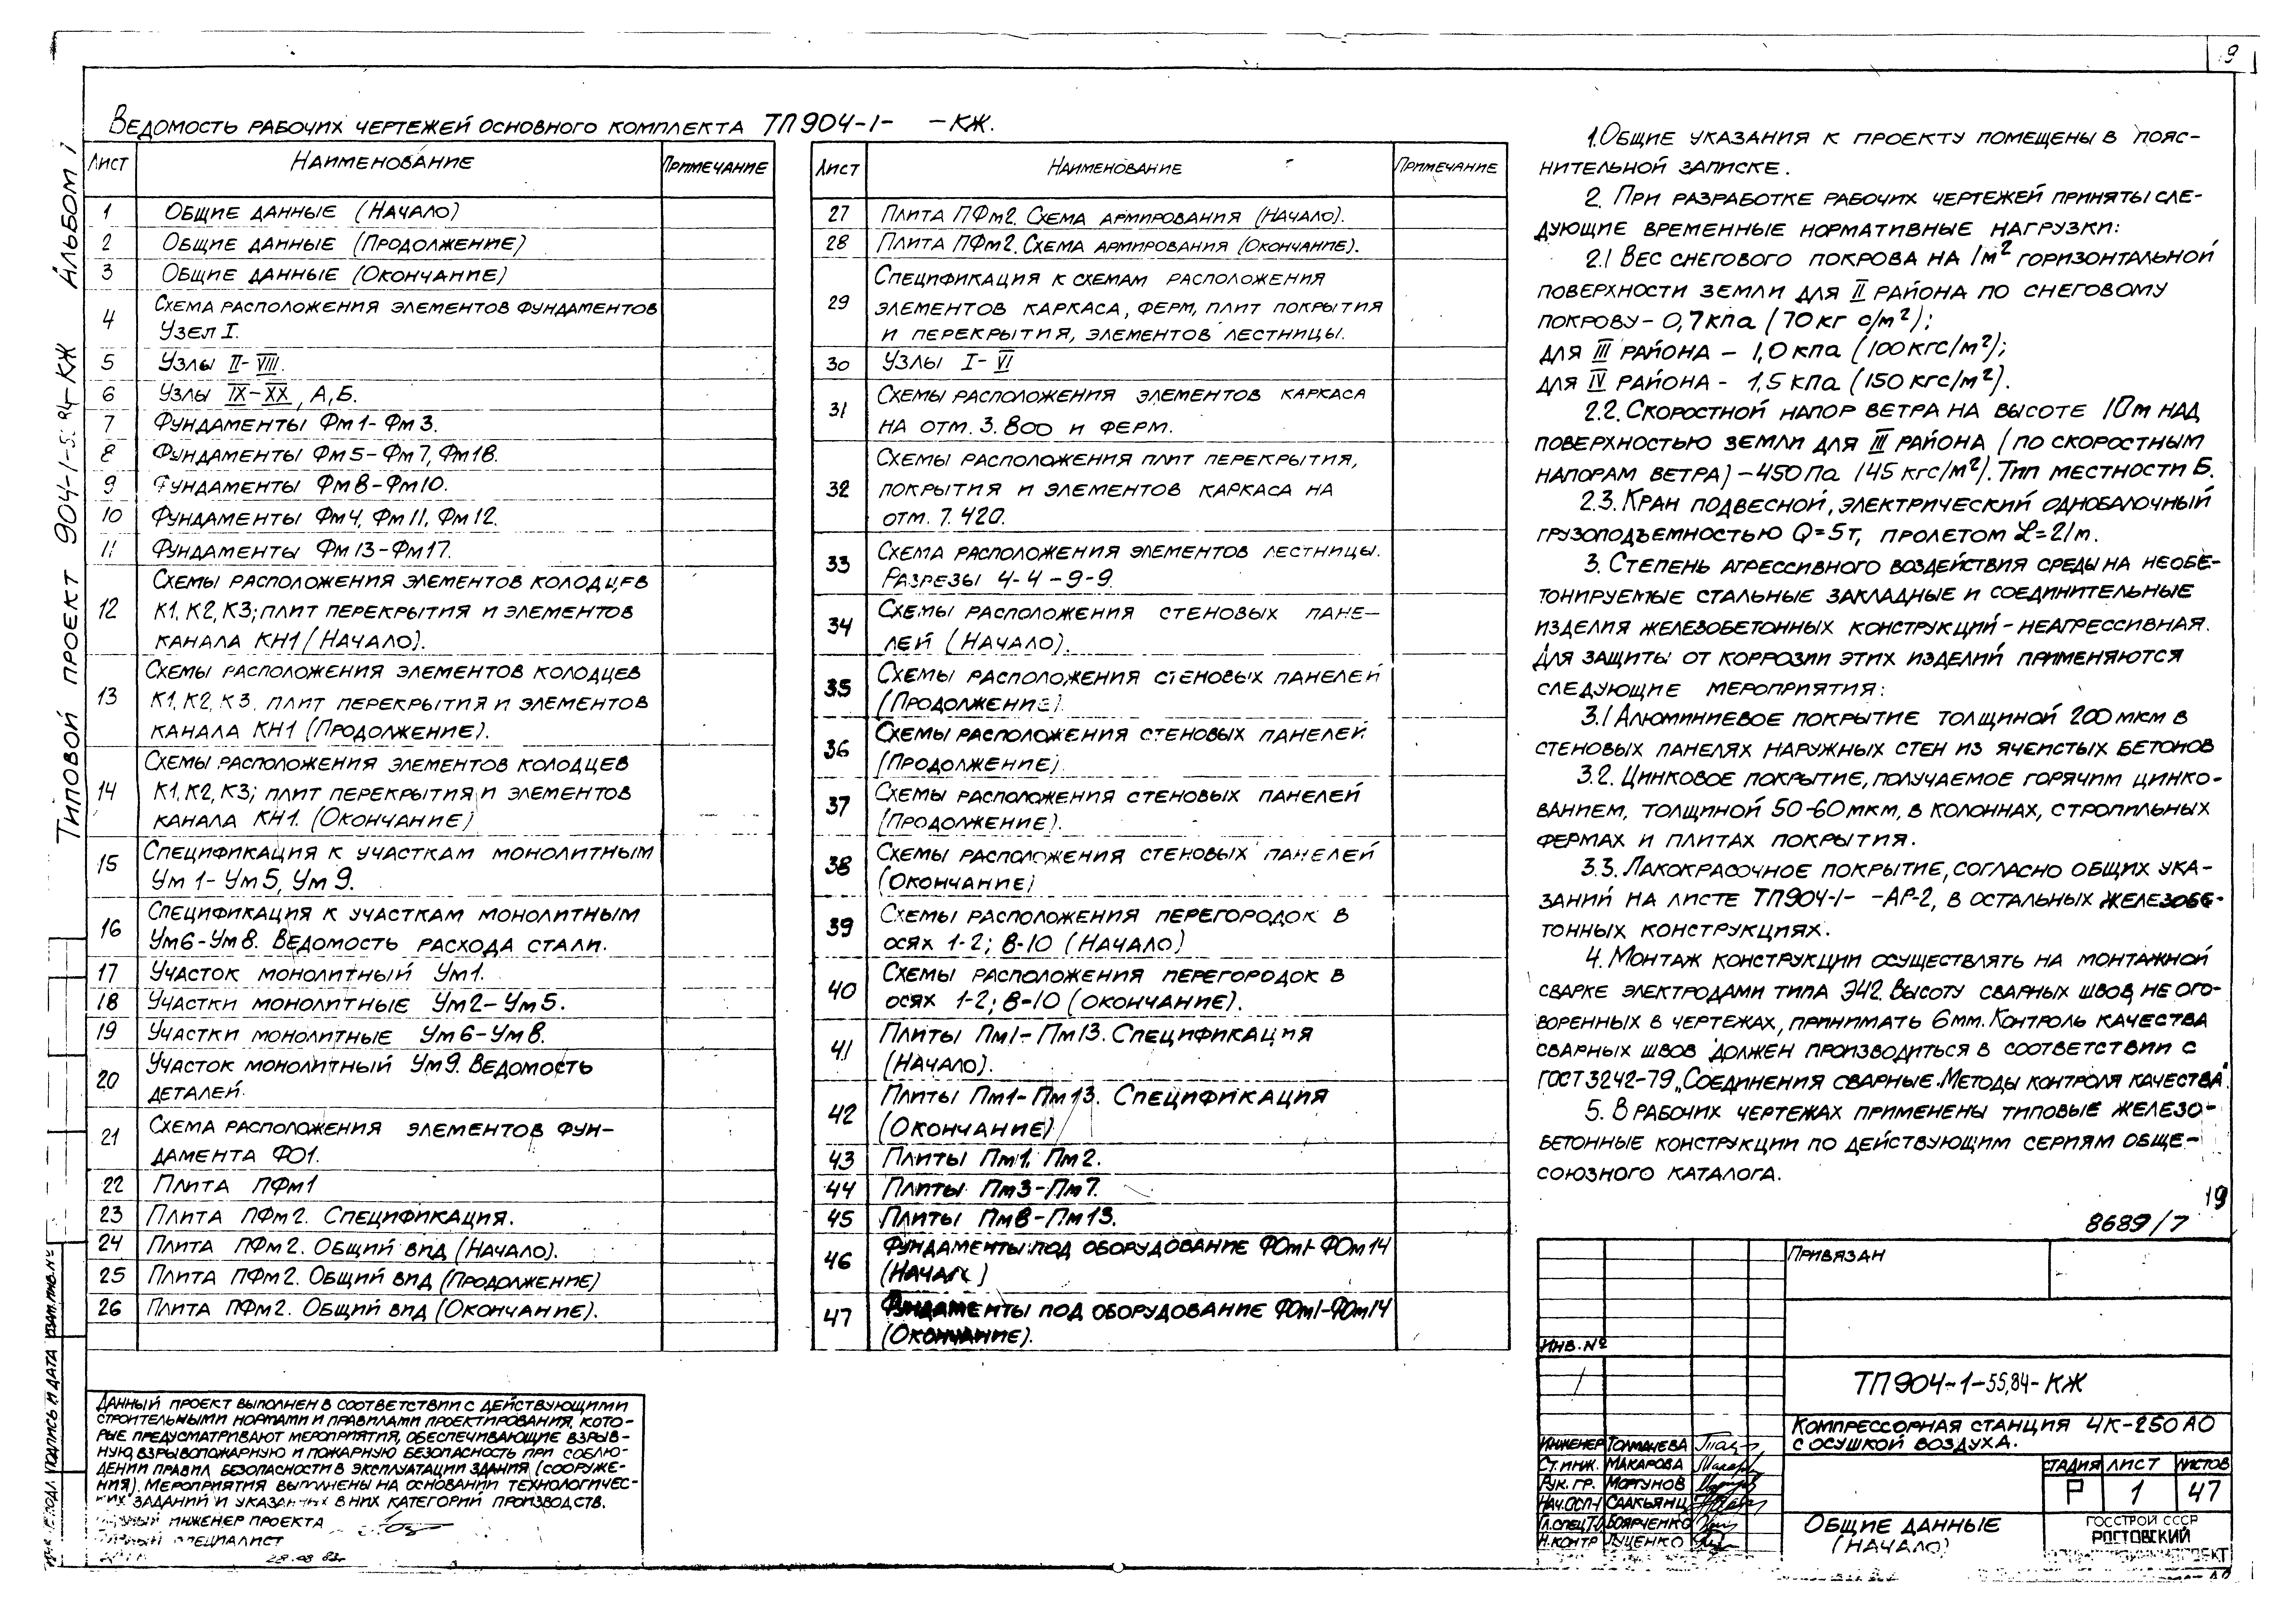 9
Типовой проект 904-1-55.84-КЖ Альбом I
Ведомость рабочих чертежей основного комплекта ТП904-1- -КЖ.
Лист Наименование Примечание
1 Общие данные (Начало)
2 Общие данные (Продолжение)
3 Общие данные (Окончание)
4 Схема расположения элементов фундаментов
Узел I.
5 Узлы II-VIII.
6 Узлы IX-XX, А,Б.
7 Фундаменты Фм1-Фм3.
8 Фундаменты Фм5-Фм7, Фм18.
9 Фундаменты Фм8-Фм10.
10 Фундаменты Фм4, Фм11, Фм12.
11 Фундаменты Фм13-Фм17.
12 Схемы расположения элементов колодцев
К1, К2, К3; плит перекрытия и элементов
канала КН1 (Начало).
13 Схемы расположения элементов колодцев
К1, К2, К3. плит перекрытия и элементов
канала КН1 (Продолжение).
14 Схемы расположения элементов колодцев
К1, К2, К3; плит перекрытия и элементов
канала КН1. (Окончание)
15 Спецификация к участкам монолитным
Ум 1-Ум 5, Ум 9.
16 Спецификация к участкам монолитным
Ум6-Ум8. Ведомость расхода стали.
17 Участок монолитный Ум1.
18 Участки монолитные Ум2-Ум5.
19 Участки монолитные Ум6-Ум8.
20 Участок монолитный Ум9. Ведомость
деталей.
21 Схема расположения элементов фун-
дамента ФО1.
22 Плита ПФм1
23 Плита ПФм2. Спецификация.
24 Плита ПФм2. Общий вид (Начало).
25 Плита ПФм2. Общий вид (Продолжение)
26 Плита ПФм2. Общий вид (Окончание).
Лист Наименование Примечание
27 Плита ПФм2. Схема армирования (Начало).
28 Плита ПФм2. Схема армирования (Окончание).
29 Спецификация к схемам расположения
элементов каркаса, ферм, плит покрытия
и перекрытия, элементов лестницы.
30 Узлы I-VI
31 Схемы расположения элементов каркаса
на отм. 3.800 и ферм.
32 Схемы расположения плит перекрытия,
покрытия и элементов каркаса на
отм. 7.420.
33 Схема расположения элементов лестницы.
Разрезы 4-4-9-9.
34 Схемы расположения стеновых пане-
лей (Начало).
35 Схемы расположения стеновых панелей
(Продолжение).
36 Схемы расположения стеновых панелей
(Продолжение).
37 Схемы расположения стеновых панелей
(Продолжение).
38 Схемы расположения стеновых панелей
(Окончание)
39 Схемы расположения перегородок в
осях 1-2; 8-10 (Начало)
40 Схемы расположения перегородок в
осях 1-2; 8-10 (окончание).
41 Плиты Пм1-Пм13. Спецификация
(Начало).
42 Плиты Пм1-Пм13. Спецификация
(Окончание)
43 Плиты Пм1. Пм2.
44 Плиты Пм3-Пм7.
45 Плиты Пм8-Пм13.
46 Фундаменты под оборудование ФОм1-ФОм14
(Начало)
47 Фундаменты под оборудование ФОм1-ФОм14
(Окончание).
1. Общие указания к проекту помещены в пояс-
нительной записке.
2. При разработке рабочих чертежей приняты сле-
дующие временные нормативные нагрузки:
2.1 Вес снегового покрова на 1м² горизонтальной
поверхности земли для II района по снеговому
покрову-0,7кпа (70кгс/м²);
для III района - 1,0кпа (100кгс/м²);
для IV района - 1,5кпа (150кгс/м²).
2.2. Скоростной напор ветра на высоте 10м над
поверхностью земли для III района (по скоростным
напорам ветра)-450Па (45кгс/м²). Тип местности Б.
2.3. Кран подвесной, электрический однобалочный
грузоподъемностью Q=5т, пролетом L=21м.
3. Степень агрессивного воздействия среды на необе-
тонируемые стальные закладные и соединительные
изделия железобетонных конструкций-неагрессивная.
Для защиты от коррозии этих изделий применяются
следующие мероприятия:
3.1 Алюминиевое покрытие толщиной 200мкм в
стеновых панелях наружных стен из ячеистых бетонов
3.2. Цинковое покрытие, получаемое горячим цинко-
ванием, толщиной 50-60мкм, в колоннах, стропильных
фермах и плитах покрытия.
3.3. Лакокрасочное покрытие, согласно общих ука-
заний на листе ТП904-1- -АР-2, в остальных железобе-
тонных конструкциях.
4. Монтаж конструкции осуществлять на монтажной
сварке электродами типа Э42. Высоту сварных швов, не ого-
воренных в чертежах, принимать 6мм. Контроль качества
сварных швов должен производиться в соответствии с
ГОСТ 3242-79 „Соединения сварные. Методы контроля качества".
5. В рабочих чертежах применены типовые железо-
бетонные конструкции по действующим сериям обще-
союзного каталога.
19
8689/7
Данный проект выполнен в соответствии с действующими
строительными нормами и правилами проектирования, кото-
рые предусматривают мероприятия, обеспечивающие взрыв-
ную, взрывопожарную и пожарную безопасность при соблю-
дении правил безопасности в эксплуатации здания (сооруже-
ния). Мероприятия выполнены на основании технологичес-
ких заданий и указанных в них категорий производств.
инженер проекта
специалист
Инв.№подл. Подпись и дата Взам.инв.№
Привязан
Инв.№
ТП904-1-55,84-КЖ
Компрессорная станция 4К-250АО
с осушкой воздуха.
Инженер Толмачева
Ст.инж. Макарова
Рук. гр. Моргунов
Нач.ОСП-1 Саакьянц
Гл.спец.Т.О. Боярченко
Н.контр Луценко
Стадия Лист Листов
Р 1 47
Общие данные
(Начало)
Госстрой СССР
Ростовский